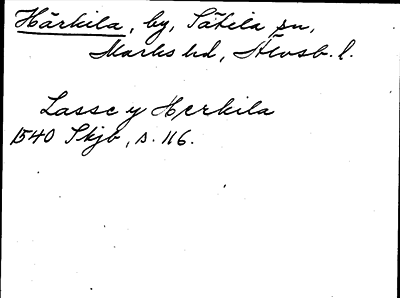 Härkila, by, Sätila sn,
Marks hd, Älvsb. l.
Lasse y Herkila
1540 Skjb, s. 116.